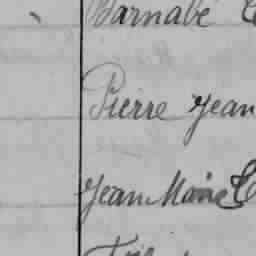 Barnabé
Pierre Jean
Jean Marie